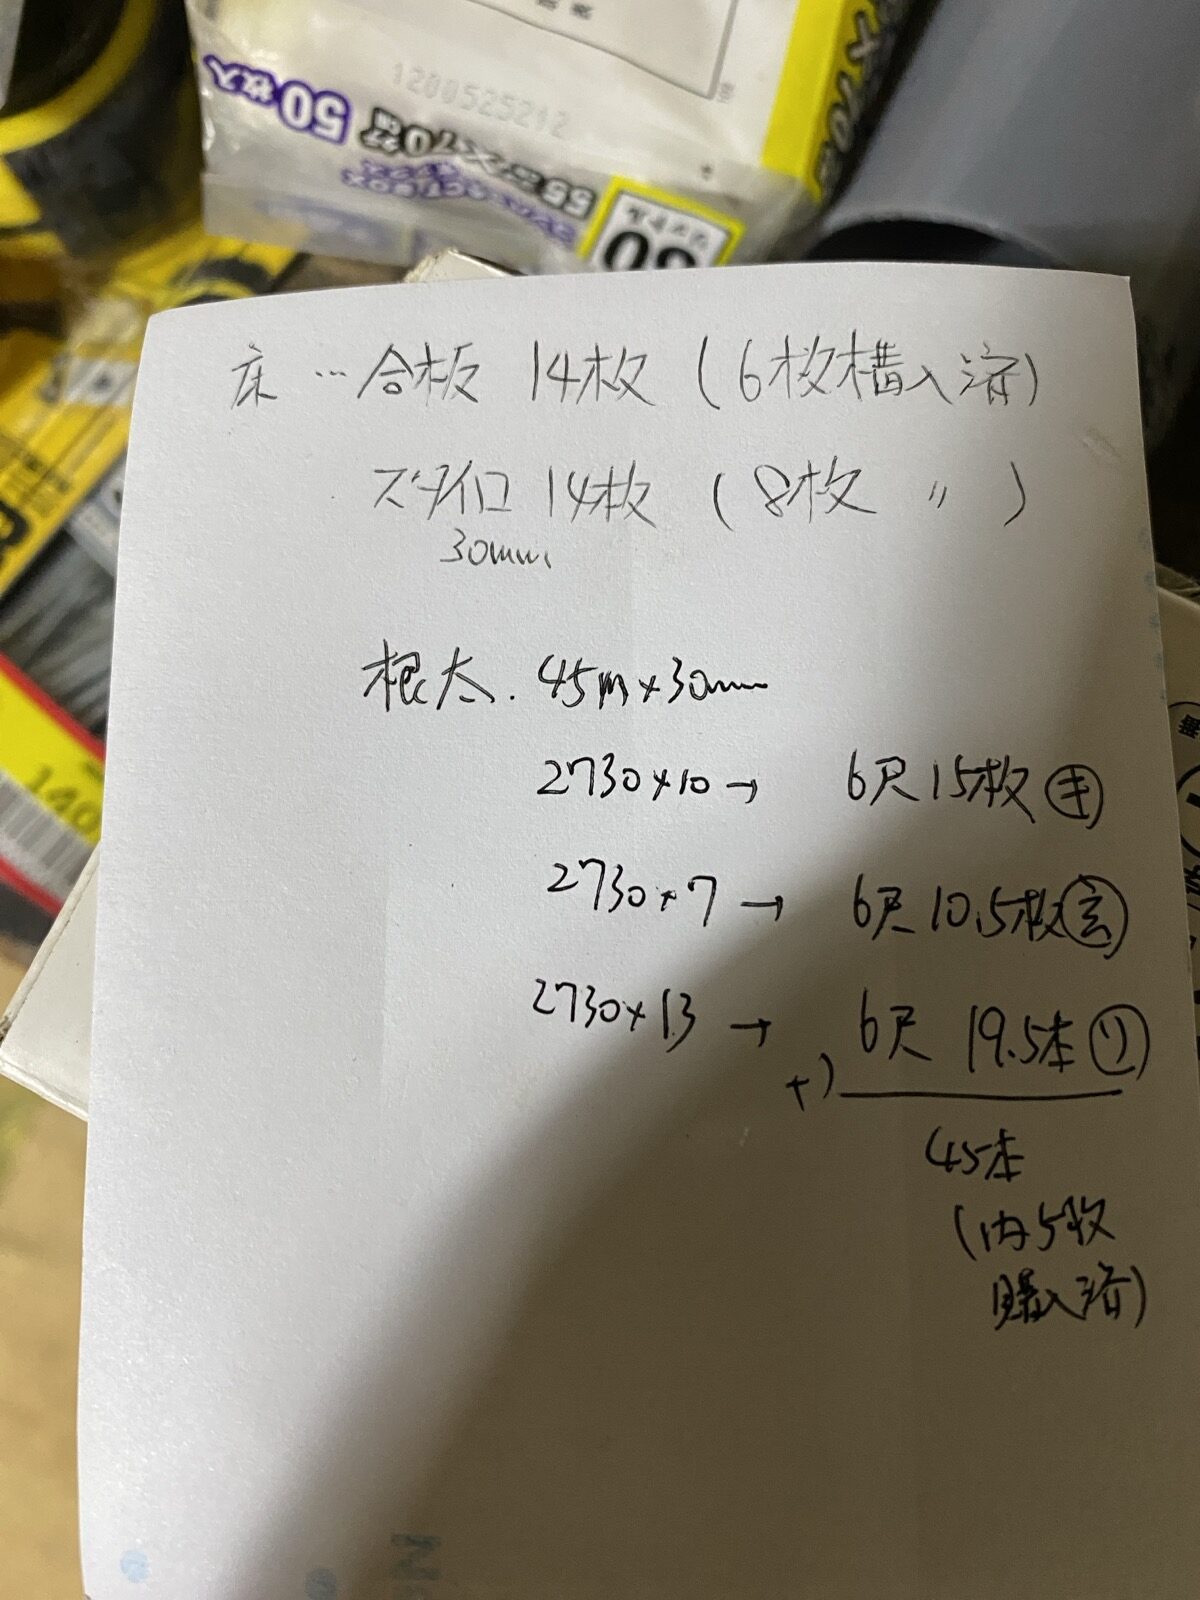 1200525212
50枚入
床…合板 14枚 (6枚構入済)
スタイロ 14枚 (8枚 〃 )
30mm
根太. 45m×30mm
2730×10→ 6尺15枚㋖
2730×7 → 6尺10.5枚
2730×13 → 6尺 19.5本㋷
+)
45本
(内5枚
購入済)